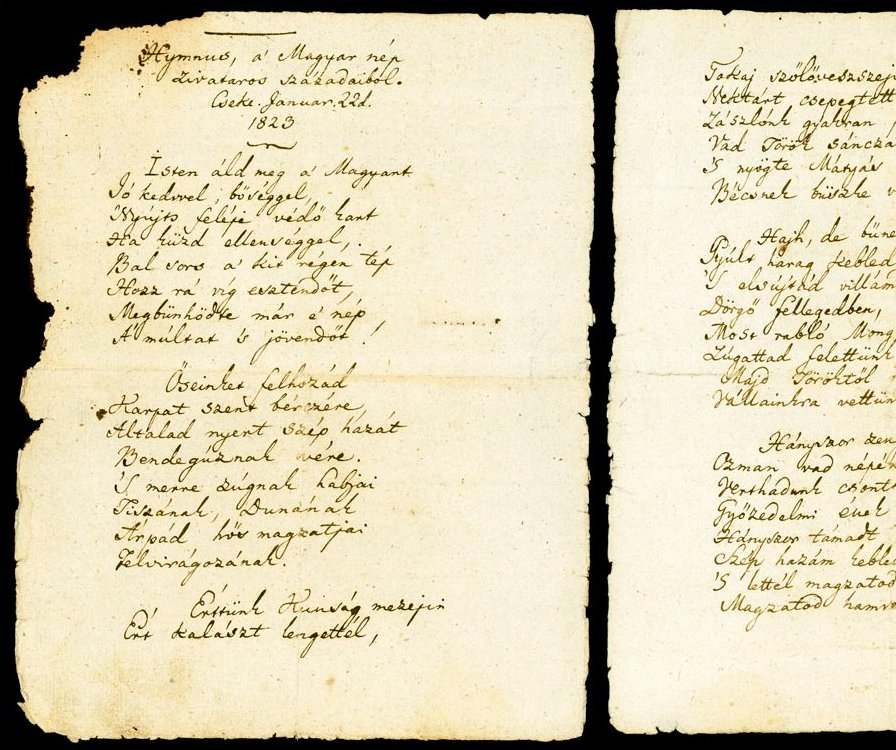 Hymnus, a' Magyar nép
zivataros századaiból.
Cseke. Januar. 22d.
1823
Isten áld meg a' Magyart
Jó kedvvel, bőséggel,
Nyújts feléje védő kart
Ha küzd ellenséggel,
Bal sors a' kit régen tép
Hozz rá víg esztendőt,
Megbünhödte már e' nép
A' múltat 's jövendőt!
Őseinket felhozád
Karpat szent bérczére
Altalad nyert szép hazát
Bendegúznak vére.
'S merre zúgnak habjai
Tiszának, Dunának
Árpád hős magzatjai
Felvirágozának.
Érttünk Kunság mezejin
Ért kalászt lengettél,
Tokaj szőlőveszszej
Nektárt csepegtett
Zászlónk gyakran
Vad Török sáncza
'S nyögte Mátyás
Bécsnek büszke
Hajh, de büne
Gyúlt harag kebled
'S elsújtád villám
Dörgő fellegedben,
Most rabló Mong
Zúgattad felettünk
Majd Töröktől
Vállainkra vettün
Hányszor zen
Ozman vad népén
Verthadunk csont
Győzedelmi ének
Hányszor támadt
Szép hazám kebled
'S lettél magzatod
Magzatod hamv